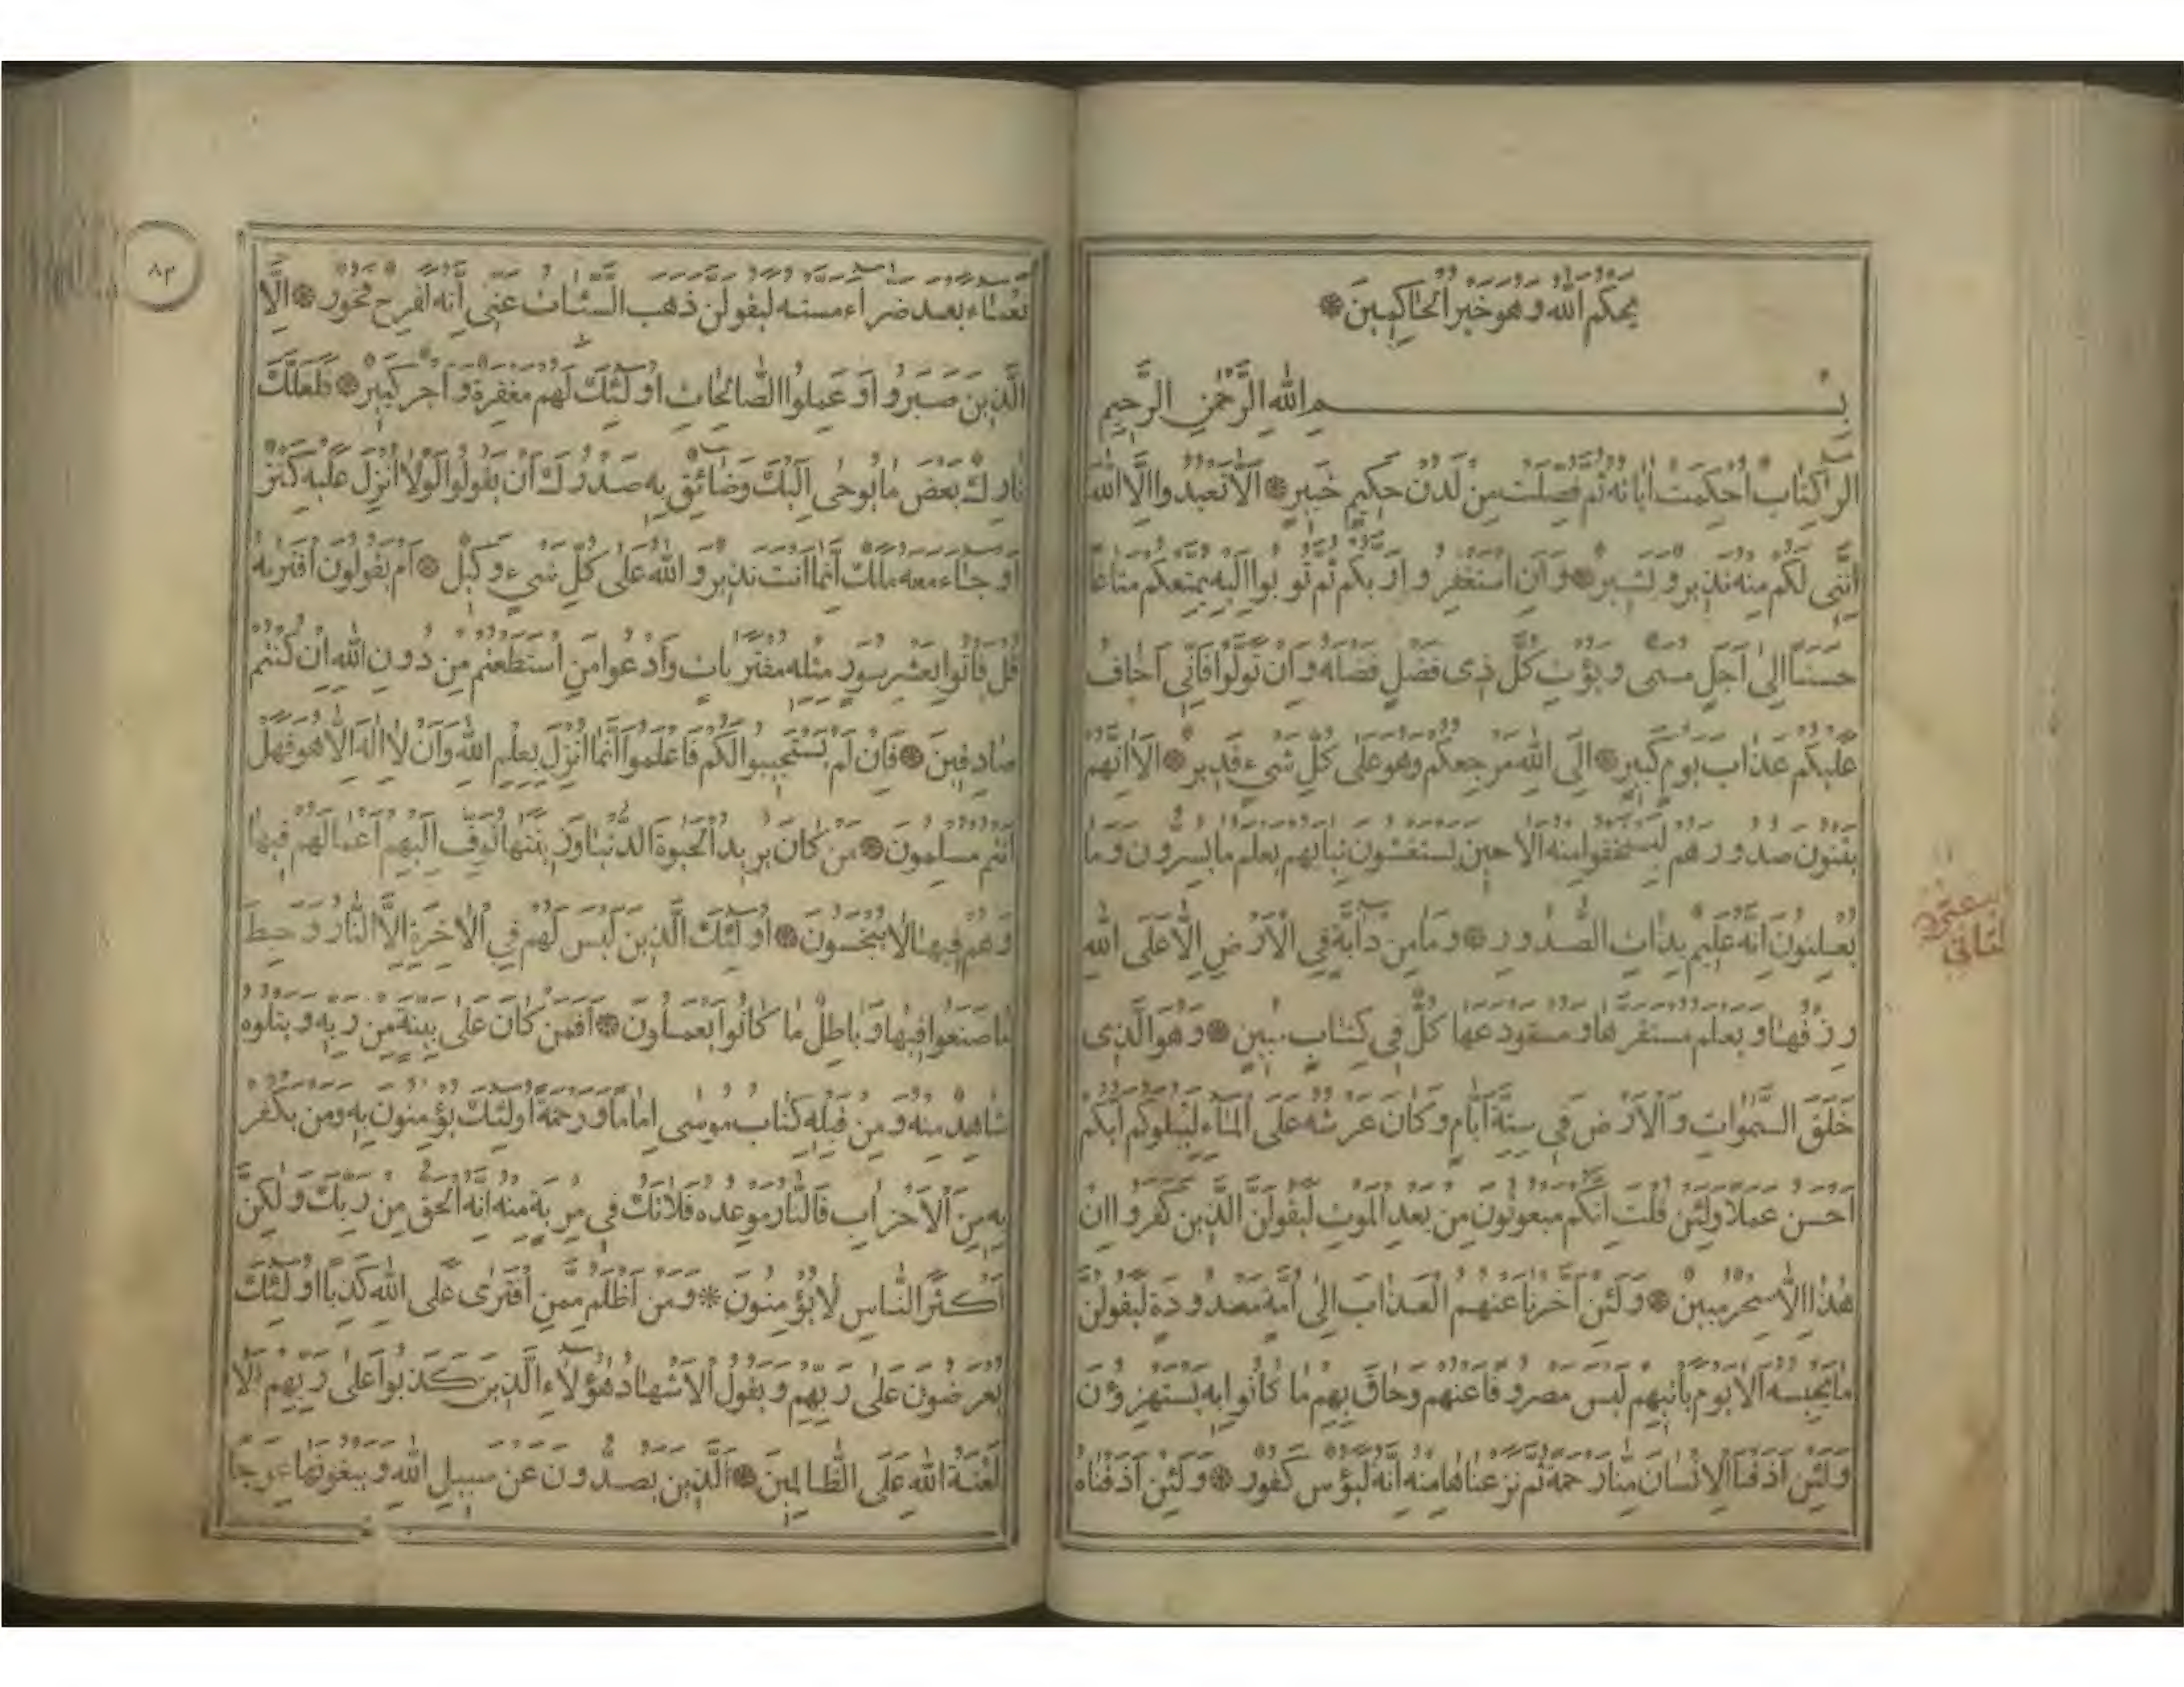 يحكم الله وهو خير الحاكمين
بسم الله الرحمن الرحيم
الر كتاب احكمت اياته ثم فصلت من لدن حكيم خبير الا تعبدوا الا الله
انني لكم منه نذير وبشير وان استغفروا ربكم ثم توبوا اليه يمتعكم متاعا
حسنا الى اجل مسمى ويؤت كل ذى فضل فضله وان تولوا فانى اخاف
عليكم عذاب يوم كبير الى الله مرجعكم وهو على كل شىء قدير الا انهم
يثنون صدورهم ليستخفوا منه الا حين يستغشون ثيابهم يعلم ما يسرون وما
يعلنون انه عليم بذات الصدور وما من دابة في الارض الا على الله
رزقها ويعلم مستقرها ومستودعها كل في كتاب مبين وهو الذى
خلق السموات والارض في ستة ايام وكان عرشه على الماء ليبلوكم ايكم
احسن عملا ولئن قلت انكم مبعوثون من بعد الموت ليقولن الذين كفروا ان
هذا الا سحر مبين ولئن اخرنا عنهم العذاب الى امة معدودة ليقولن
ما يحبسه الا يوم ياتيهم ليس مصروفا عنهم وحاق بهم ما كانوا به يستهزؤن
ولئن اذقنا الانسان منا رحمة ثم نزعناها منه انه ليؤس كفور ولئن اذقناه
٨٢
نعماء بعد ضراء مسته ليقولن ذهب السيئات عنى انه لفرح فخور الا
الذين صبروا وعملوا الصالحات اولئك لهم مغفرة واجر كبير فلعلك
تارك بعض ما يوحى اليك وضائق به صدرك ان يقولوا لولا انزل عليه كنز
او جاء معه ملك انما انت نذير والله على كل شىء وكيل ام يقولون افتريه
قل فاتوا بعشر سور مثله مفتريات وادعوا من استطعتم من دون الله ان كنتم
صادقين فان لم يستجيبوا لكم فاعلموا انما انزل بعلم الله وان لا اله الا هو فهل
انتم مسلمون من كان يريد الحيوة الدنيا وزينتها نوف اليهم اعمالهم فيها
وهم فيها لا يبخسون اولئك الذين ليس لهم في الاخرة الا النار وحبط
ما صنعوا فيها وباطل ما كانوا يعملون افمن كان على بينة من ربه ويتلوه
شاهد منه ومن قبله كتاب موسى اماما ورحمة اولئك يؤمنون به ومن يكفر
به من الاحزاب فالنار موعده فلا تك في مرية منه انه الحق من ربك ولكن
اكثر الناس لا يؤمنون ومن اظلم ممن افترى على الله كذبا اولئك
يعرضون على ربهم ويقول الاشهاد هؤلاء الذين كذبوا على ربهم الا
لعنة الله على الظالمين الذين يصدون عن سبيل الله ويبغونها عوجا